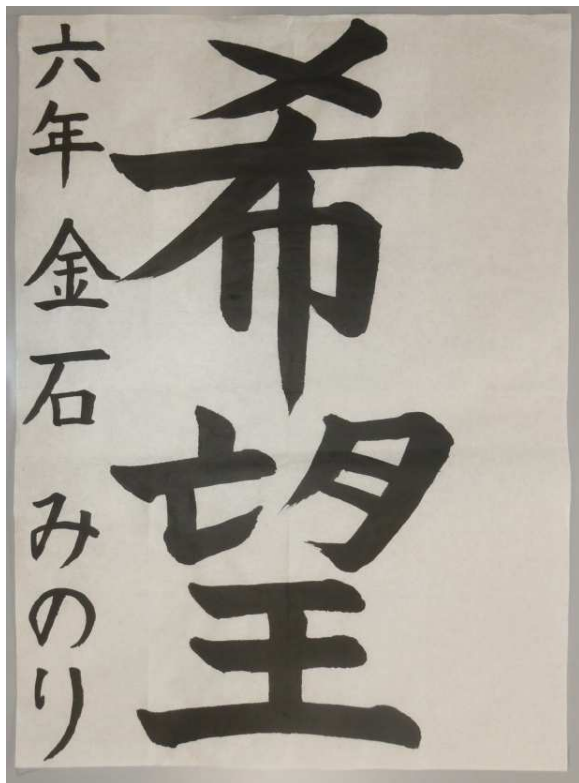 希望
六年 金石 みのり